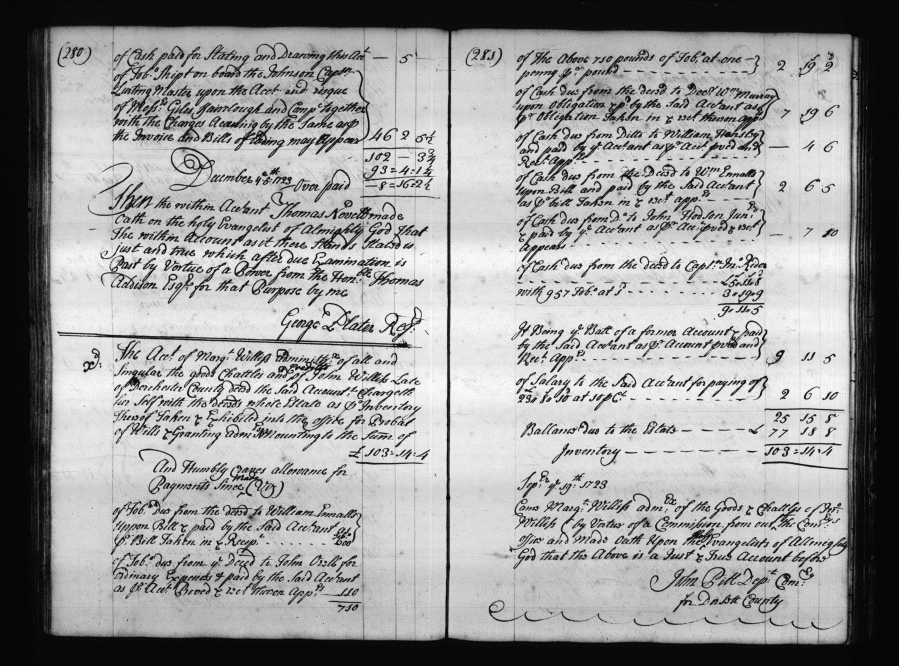 (280)
of Cash paid for Stating and Drawing this Acct — 5 —
of Tobo. Shipt on board the Johnson Captn.
Master upon the Acct. and resque
of Messrs. Giles Gainlough and Comp. together
with the Charges Accruing by the Same as p
the Invoice and Bills of Lading may Appear 46 2 5½
102 — 3¾
93 = 4 = 1¼
December 4th. 1723 Over paid — 8 = 16 = 2½
Then the within Accotant Thomas Novell made
oath on the holy Evangelist of Almighty God that
the within Account as it there Stands Stated is
just and true which after due Examination is
Past by Vertue of a Power from the Honble. Thomas
Addison Esqr. for that Purpose by me
George Plater Regr.
xd.
The Acct. of Margt. Williss Administrx. of all and
Singular the goods Chattles and Creditts of John Williss Late
of Dorchester County decd the Said Accountt. Chargeth
her Self with the decds whole Estate as pr. Inventory
thereof Taken & Exhibited into the office for Probat
of Wills & Granting admrs. Amounting to the Sum of
£ 103 = 14 = 4
And Humbly Craves allowance for
Payments Since made (Vizt)
of Tobo. due from the decd to William Ennalls
uppon Bill & paid by the Said Accotant as
pr. Bill Taken in & Receipt
of Tobo. due from ye. Decd to John Orell for
Ordinary Expences & paid by the Said Accotant
as pr. Acct. Proved & rect thereon Appr. 110
710
(281)
of the Above 710 pounds of Tobo. at one
penny pr. pound 2 19 2
of Cash due from the decd to Docr. Wm. Murray
upon Obligation & pd by the Said Accotant as
pr. Obligation Taken in & rect thereon Appr. 7 19 6
of Cash due from Ditto to William Hansby
and paid by ye. Accotant as pr. Acct. pved &
Rect. Appr. — 4 6
of Cash due from the Decd to Wm. Ennalls
upon Bill and paid by the Said Accotant
as pr. bill Taken in & rect. appr. 2 6 5
of Cash due from Do. to John Hodson Junr.
& paid by ye. Accotant as pr. Acc. pved & rect
Appears — 7 10
of Cash due from the decd to Captn. Jno. Rider
with 957 Tobo. at 1d 3 = 19 = 9
9 = 11 = 5
It Being ye. Ball of a former Account & paid
by the Said Accotant as pr. Account proved and
Rect. Appr. 9 11 5
of Salary to the Said Accotant for paying of
at 10 pr. Ct. 2 6 10
25 15 8
Ballance due to the Estate £ 77 18 8
Inventory 103 = 14 = 4
Sepr. ye. 19th. 1723
Came Margt. Williss admx. of the Goods & Chattles of Jno.
Williss by Vertue of a Commission from out the Comrys.
office and Made Oath Upon the holy Evangelists of Allmighty
God that the Above is a Just & True Account before
Jwn Pitt Depty. Comry.
for Dorsett County